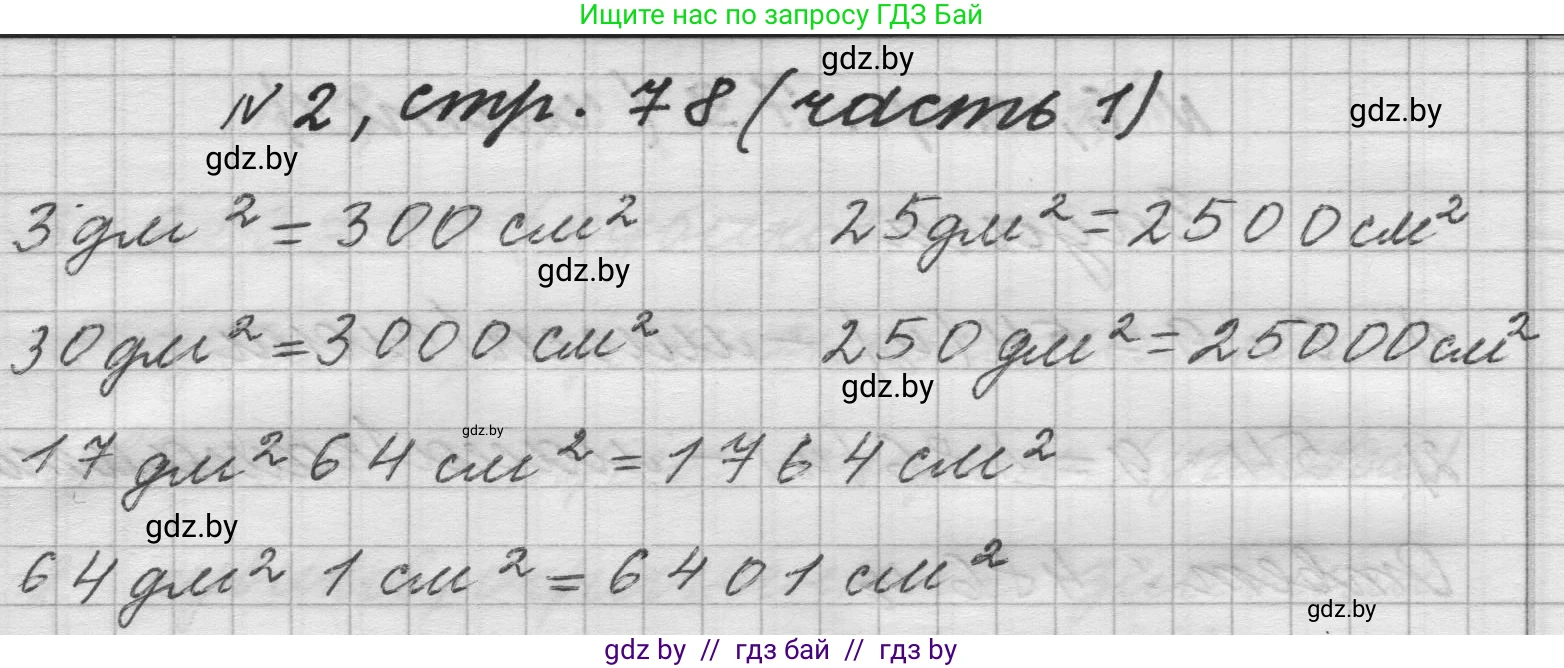 Ищите нас по запросу ГДЗ Бай
gdz.by
№ 2, стр. 78 (часть 1)
gdz.by
gdz.by
3 дм² = 300 см² 25 дм² = 2500 см²
gdz.by
30 дм² = 3000 см² 250 дм² = 25000 см²
gdz.by
gdz.by
17 дм² 64 см² = 1764 см²
gdz.by
64 дм² 1 см² = 6401 см²
gdz.by
gdz by // гдз бай // гдз by